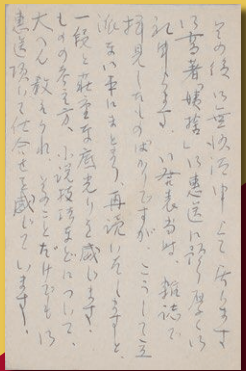 その後は御無沙汰申し上て居ります
御高著「姨捨」御恵送に預り厚く御
礼申上ます。いづれも発表当時、雑誌で
拝見したものばかりですが、こうして立
派な本にまとまり、再読いたしますと、
一段と荘重な底光りを感じます。
ものの考え方、小説技法などについて、
大へん教えられ、そのことだけでも御
恵送頂いて仕合せを感じています。